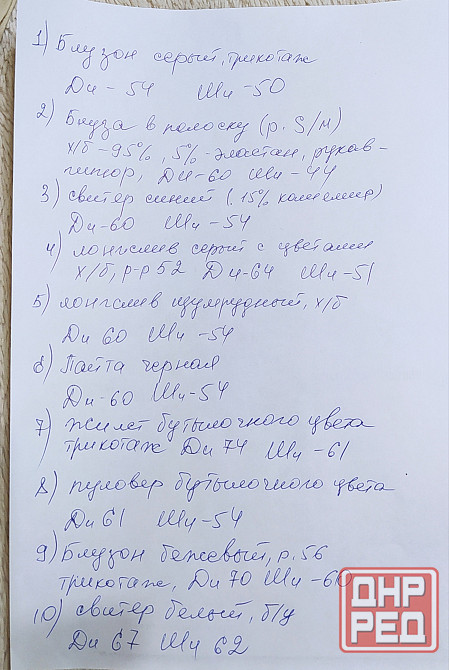 1) Блузон серый, трикотаж
Ди - 54 Ши - 50
2) Блуза в полоску (р. S/M)
х/б - 95%, 5% - эластан, рукав -
гипюр, Ди - 60 Ши - 44
3) свитер синий (15% кашемир)
Ди - 60 Ши - 54
4) лонгслив серый с цветами
х/б, р-р 52 Ди - 64 Ши - 51
5) лонгслив изумрудный, х/б
Ди 60 Ши - 54
6) Пайта черная
Ди - 60 Ши - 54
7) Жилет бутылочного цвета
трикотаж Ди 74 Ши - 61
8) пуловер бутылочного цвета
Ди 61 Ши - 54
9) Блузон бежевый, р. 56
трикотаж, Ди 70 Ши - 60
10) свитер белый, б/у
Ди 67 Ши 62
ДНР
РЕД